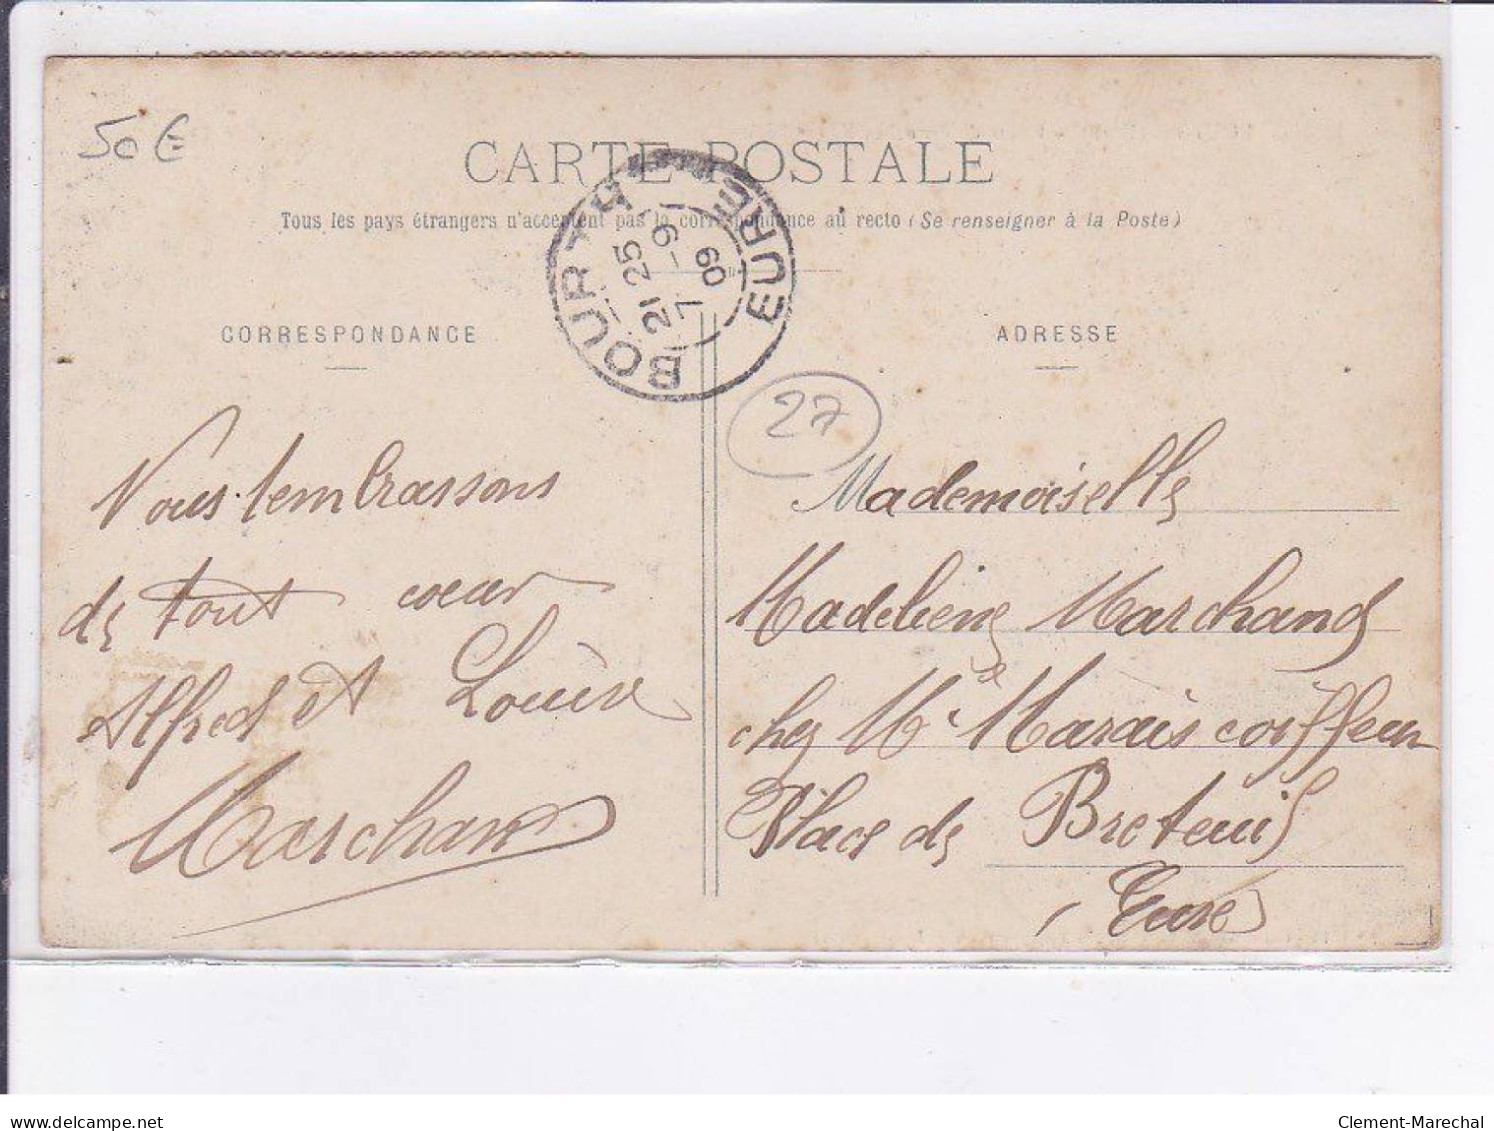 50 €
CARTE POSTALE
Tous les pays étrangers n'acceptent pas la correspondance au recto (Se renseigner à la Poste)
BOURTH
EURE
21 25
7 - 9
09
CORRESPONDANCE
ADRESSE
27
Nous t'embrassons
de tout coeur
Alfred et Louise
Marchand
Mademoiselle
Madeleine Marchand
chez Mr Marais coiffeur
Place de Breteuil
Eure
delcampe.net
Clement-Marechal